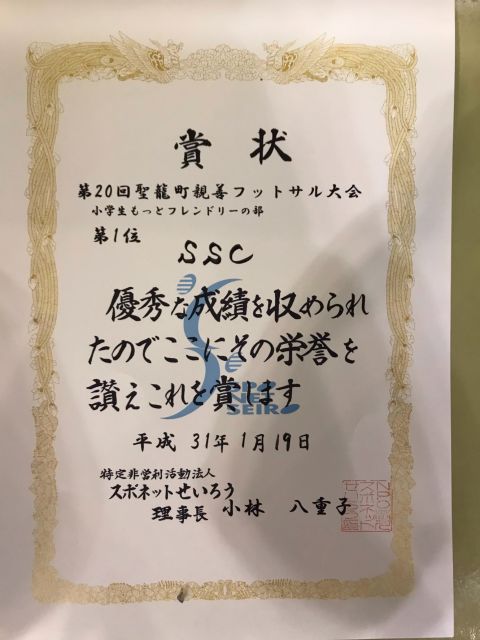 賞状
第20回聖籠町親善フットサル大会
小学生もっとフレンドリーの部
第1位
SSC
優秀な成績を収められ
たのでここにその栄誉を
讃えこれを賞します
平成 31年1月19日
特定非営利活動法人
スポネットせいろう
理事長 小林 八重子